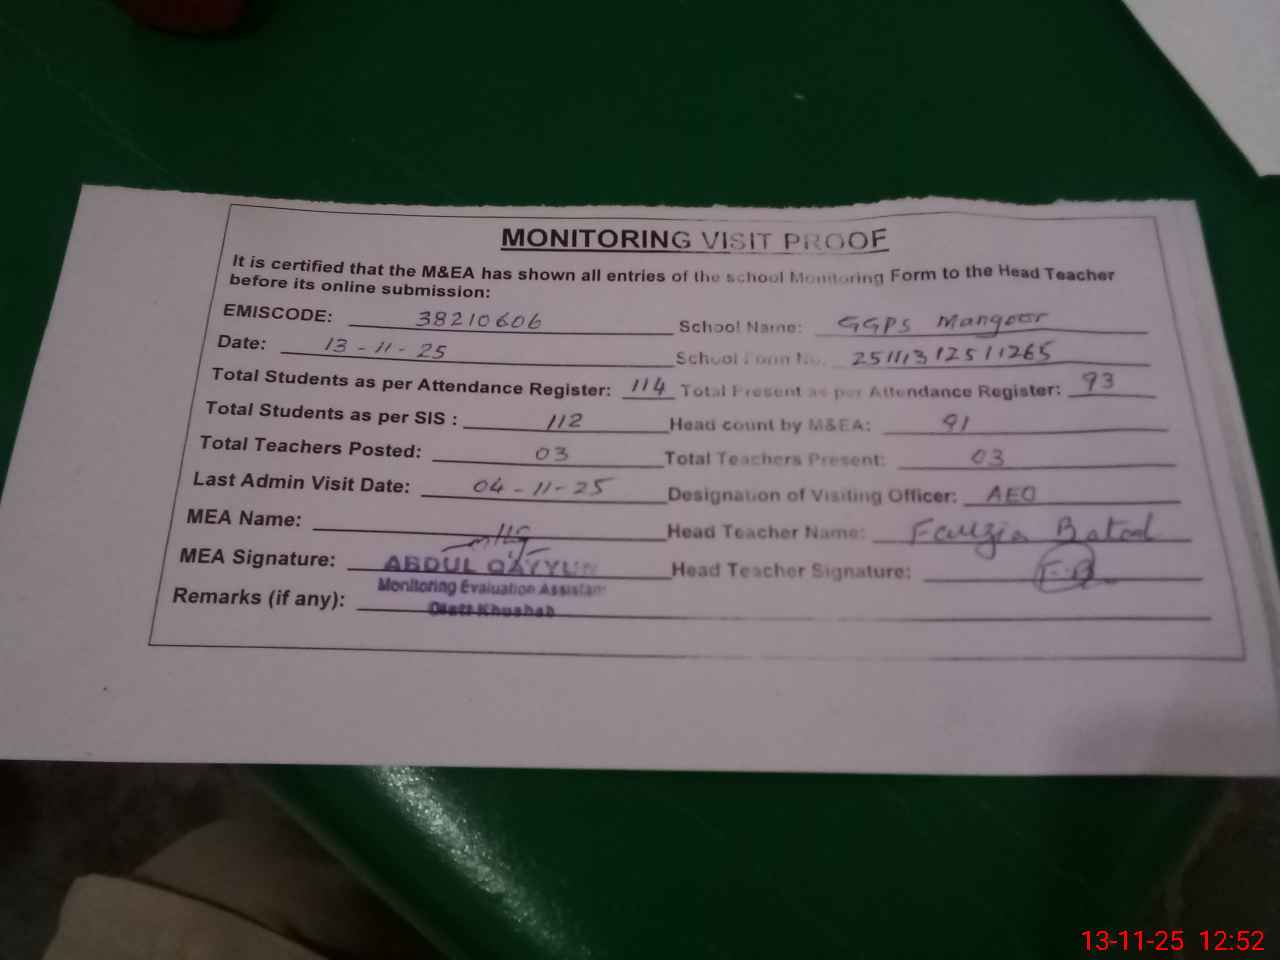 MONITORING VISIT PROOF
It is certified that the M&EA has shown all entries of the school Monitoring Form to the Head Teacher
before its online submission:
EMISCODE: 38210606 School Name: GGPS Mangoor
Date: 13-11-25 School Form No. 25111312511265
Total Students as per Attendance Register: 114 Total Present as per Attendance Register: 93
Total Students as per SIS : 112 Head count by M&EA: 91
Total Teachers Posted: 03 Total Teachers Present: 03
Last Admin Visit Date: 04-11-25 Designation of Visiting Officer: AEO
MEA Name: Head Teacher Name: Fauzia Batool
MEA Signature: ABDUL QAYYUM Head Teacher Signature: F.B
Monitoring Evaluation Assistant
Remarks (if any): Distt Khushab
13-11-25 12:52